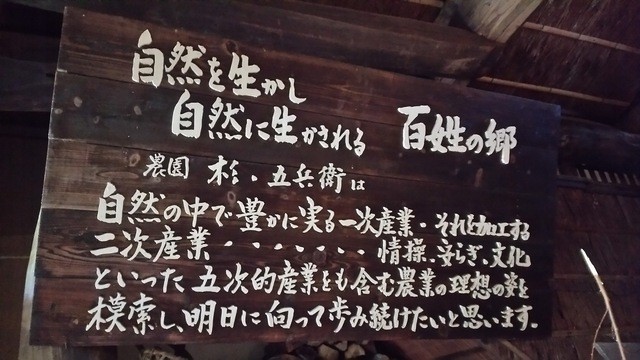 自然を生かし
自然に生かされる 百姓の郷
農園 杉・五兵衛は
自然の中で豊かに実る一次産業・それを加工する
二次産業・・・・・・・情操、安らぎ、文化
といった五次的産業をも含む農業の理想の姿を
模索し、明日に向って歩み続けたいと思います。